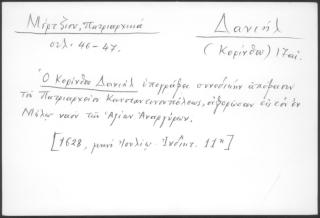 Μέρτζιου, Πατριαρχικά
σελ. 46-47.
Δανιήλ
(Κορίνθου) 17 αἰ.
Ὁ Κορίνθου Δανιήλ ὑπογράφει συνοδικήν ἀπόφασιν
τοῦ Πατριαρχείου Κωνσταντινουπόλεως, ἀφορῶσαν εἰς τόν ἐν
Μήλῳ ναόν τῶν Ἁγίων Ἀναργύρων.
[1628, μηνί Ἰουλίῳ Ἰνδικτ. 11η]